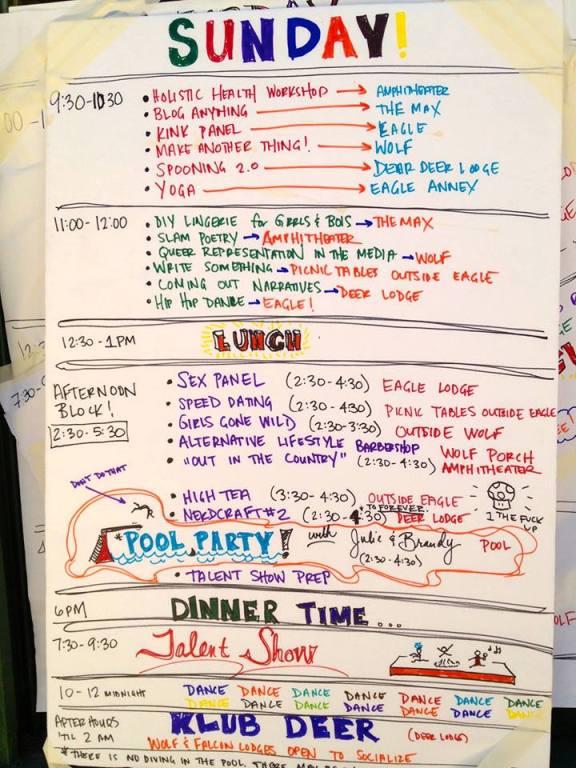 SUNDAY!
9:30-10:30
• HOLISTIC HEALTH WORKSHOP → AMPHITHEATER
• BLOG ANYTHING → THE MAX
• KINK PANEL → EAGLE
• MAKE ANOTHER THING! → WOLF
• SPOONING 2.0 → DEAR DEER LODGE
• YOGA → EAGLE ANNEX
11:00-12:00
• DIY LINGERIE for GRRLS & BOIS → THE MAX
• SLAM POETRY → AMPHITHEATER
• QUEER REPRESENTATION IN THE MEDIA → WOLF
• WRITE SOMETHING → PICNIC TABLES OUTSIDE EAGLE
• COMING OUT NARRATIVES → DEER LODGE
• HIP HOP DANCE → EAGLE!
12:30-1PM LUNCH
AFTERNOON BLOCK!
2:30-5:30
• SEX PANEL (2:30-4:30) EAGLE LODGE
• SPEED DATING (2:30-4:30) PICNIC TABLES OUTSIDE EAGLE
• GIRLS GONE WILD (2:30-3:30) OUTSIDE WOLF
• ALTERNATIVE LIFESTYLE BARBERSHOP WOLF PORCH
• "OUT IN THE COUNTRY" (2:30-4:30) AMPHITHEATER
DON'T DO THAT
• HIGH TEA (3:30-4:30) OUTSIDE EAGLE
* TO FOREVER
• NERDCRAFT #2 (2:30-4:30) DEER LODGE
1 THE FUCK UP
*POOL PARTY! with Julie & Brandy POOL
(2:30-4:30)
• TALENT SHOW PREP
6PM DINNER TIME...
7:30-9:30 Talent Show
10-12 MIDNIGHT DANCE DANCE DANCE DANCE DANCE DANCE DANCE
DANCE DANCE DANCE DANCE DANCE DANCE DANCE
AFTER HOURS 'TIL 2 AM KLUB DEER (DEER LODGE)
WOLF & FALCON LODGES OPEN TO SOCIALIZE
*THERE IS NO DIVING IN THE POOL. THERE MAY BE